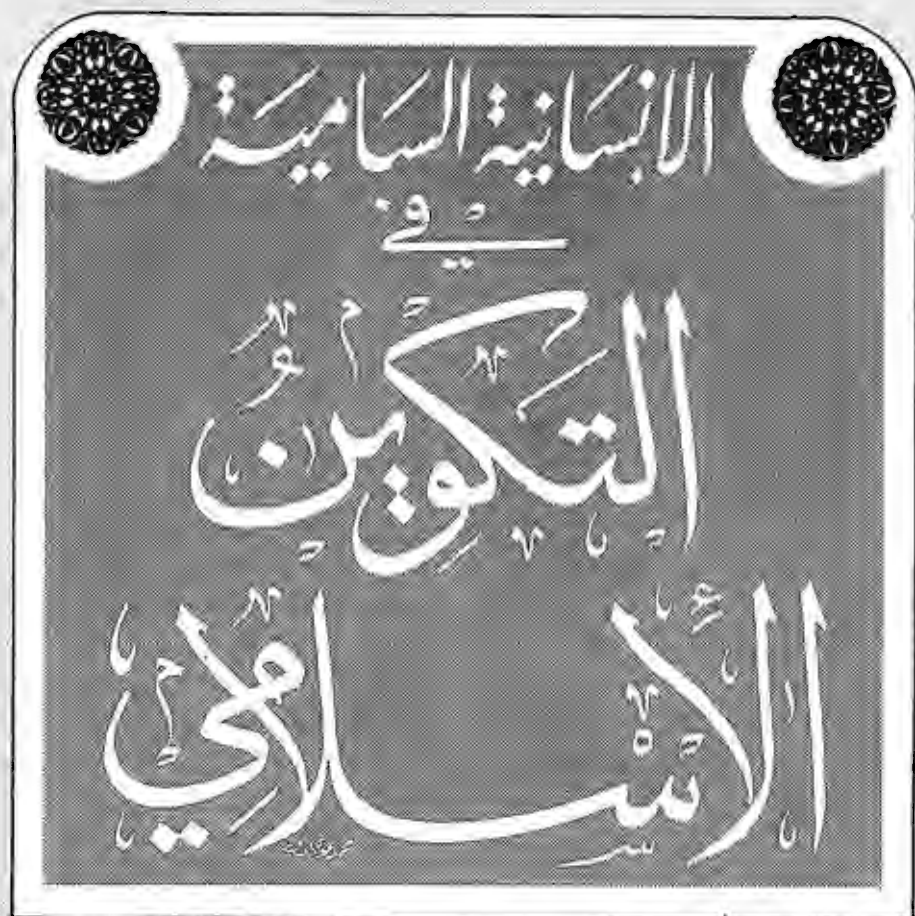 الإنسانية السامية
في
التكوين
الأسلامي